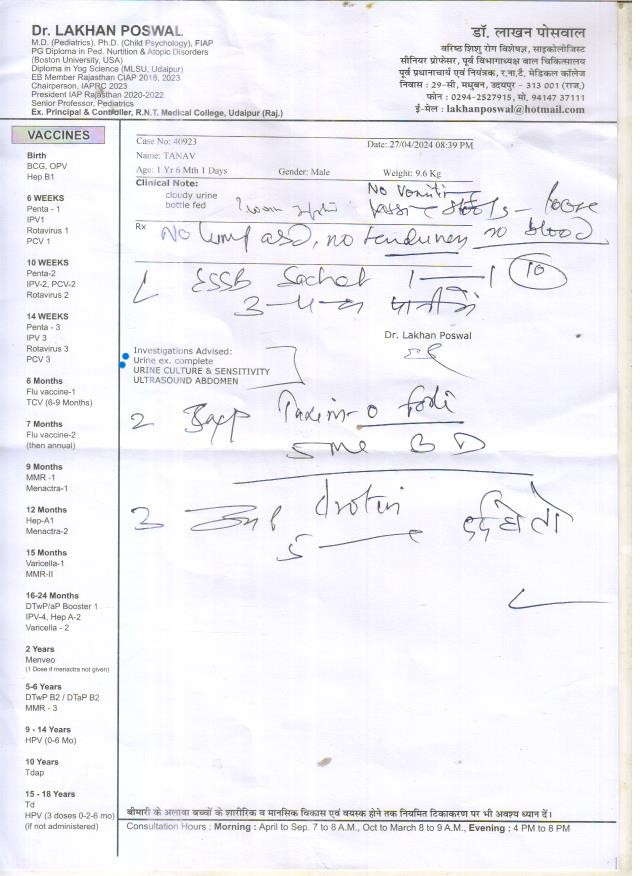 Dr. LAKHAN POSWAL
M.D. (Pediatrics), Ph.D. (Child Psychology), FIAP
PG Diploma in Ped. Nurtition & Atopic Disorders
(Boston University, USA)
Diploma in Yog Science (MLSU, Udaipur)
EB Member Rajasthan CIAP 2018, 2023
Chairperson, IAPRC 2023
President IAP Rajasthan 2020-2022
Senior Professor, Pediatrics
Ex. Principal & Controller, R.N.T. Medical College, Udaipur (Raj.)
डॉ. लाखन पोसवाल
वरिष्ठ शिशु रोग विशेषज्ञ, साइकोलोजिस्ट
सीनियर प्रोफेसर, पूर्व विभागाध्यक्ष बाल चिकित्सालय
पूर्व प्रधानाचार्य एवं नियंत्रक, र.ना.टै. मेडिकल कॉलेज
निवास : 29-सी, मधुबन, उदयपुर - 313 001 (राज.)
फोन : 0294-2527915, मो. 94147 37111
ई-मेल : lakhanposwal@hotmail.com
VACCINES
Birth
BCG, OPV
Hep B1
6 WEEKS
Penta - 1
IPV1
Rotavirus 1
PCV 1
10 WEEKS
Penta-2
IPV-2, PCV-2
Rotavirus 2
14 WEEKS
Penta - 3
IPV 3
Rotavirus 3
PCV 3
6 Months
Flu vaccine-1
TCV (6-9 Months)
7 Months
Flu vaccine-2
(then annual)
9 Months
MMR -1
Menactra-1
12 Months
Hep-A1
Menactra-2
15 Months
Varicella-1
MMR-II
16-24 Months
DTwP/aP Booster 1
IPV-4, Hep A-2
Varicella - 2
2 Years
Menveo
(1 Dose if menactra not given)
5-6 Years
DTwP B2 / DTaP B2
MMR - 3
9 - 14 Years
HPV (0-6 Mo)
10 Years
Tdap
15 - 18 Years
Td
HPV (3 doses 0-2-6 mo)
(if not administered)
Case No: 40923
Date: 27/04/2024 08:39 PM
Name: TANAV
Age: 1 Yr 6 Mth 1 Days
Gender: Male
Weight: 9.6 Kg
Clinical Note:
cloudy urine
bottle fed
No
stools - loose
Rx
No lump no no blood
Sachet 1 1 10
Dr. Lakhan Poswal
Investigations Advised:
Urine ex. complete
URINE CULTURE & SENSITIVITY
ULTRASOUND ABDOMEN
2 -O
5 ml BD
3 drotin
5
बीमारी के अलावा बच्चों के शारीरिक व मानसिक विकास एवं वयस्क होने तक नियमित टिकाकरण पर भी अवश्य ध्यान दें।
Consultation Hours : Morning : April to Sep. 7 to 8 A.M., Oct to March 8 to 9 A.M., Evening : 4 PM to 8 PM